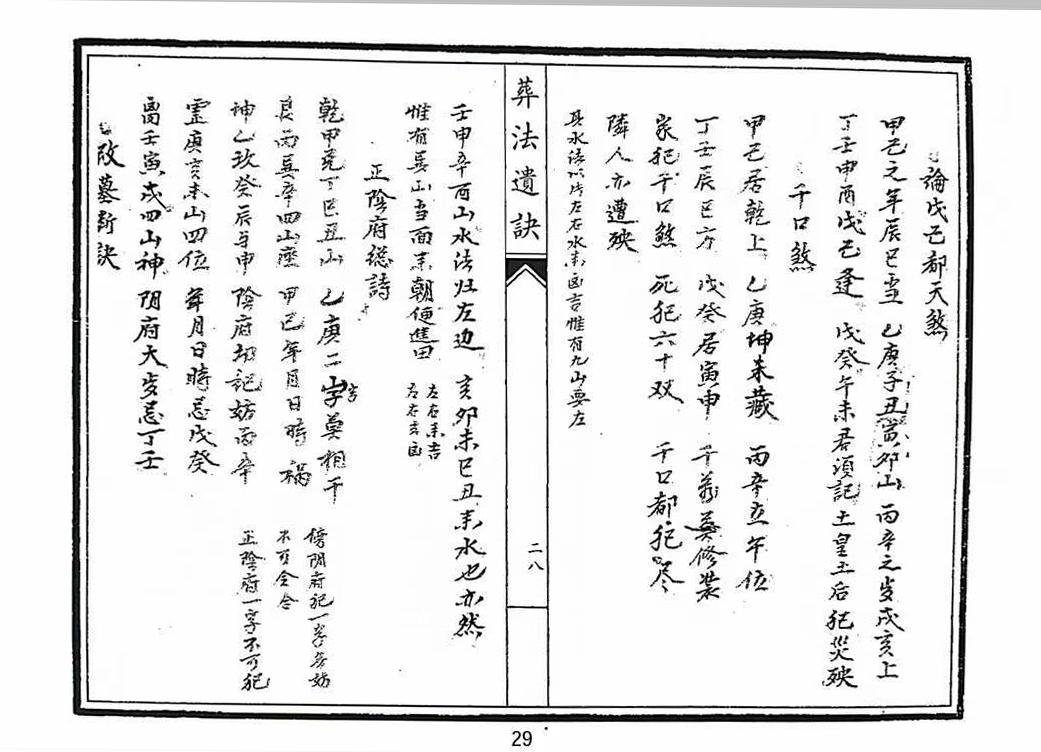 論戊己都天煞
甲己之年辰巳立 乙庚子丑寅卯山 丙辛之岁戌亥上
丁壬申酉戊己逢 戊癸午未君須記 土皇土后犯災殃
千口煞
甲己居乾上 乙庚坤未藏 丙辛立午位
丁壬辰巳方 戊癸居寅申 千萬莫修裝
家犯千口煞 死犯六十双 千口都犯尽
隣人亦遭殃
其水法以片左右水来凶吉惟有九山要左
葬法遺訣
二八
壬申辛酉山水法归左边 亥卯未巳丑来水也亦然
惟有艮山当面来朝便進田 左右来吉
右右来凶
正陰府総詩
乾甲兑丁巳丑山 乙庚二字莫相干 傍阴府犯一字无妨
艮丙巽辛四山座 甲己年月日時禍 不可全合
坤乙玖癸辰与申 陰府切記妨丙辛 正陰府一字不可犯
霊庚亥未山四位 年月日時忌戊癸
离壬寅戌四山神 阴府大岁忌丁壬
改墓斬訣
29